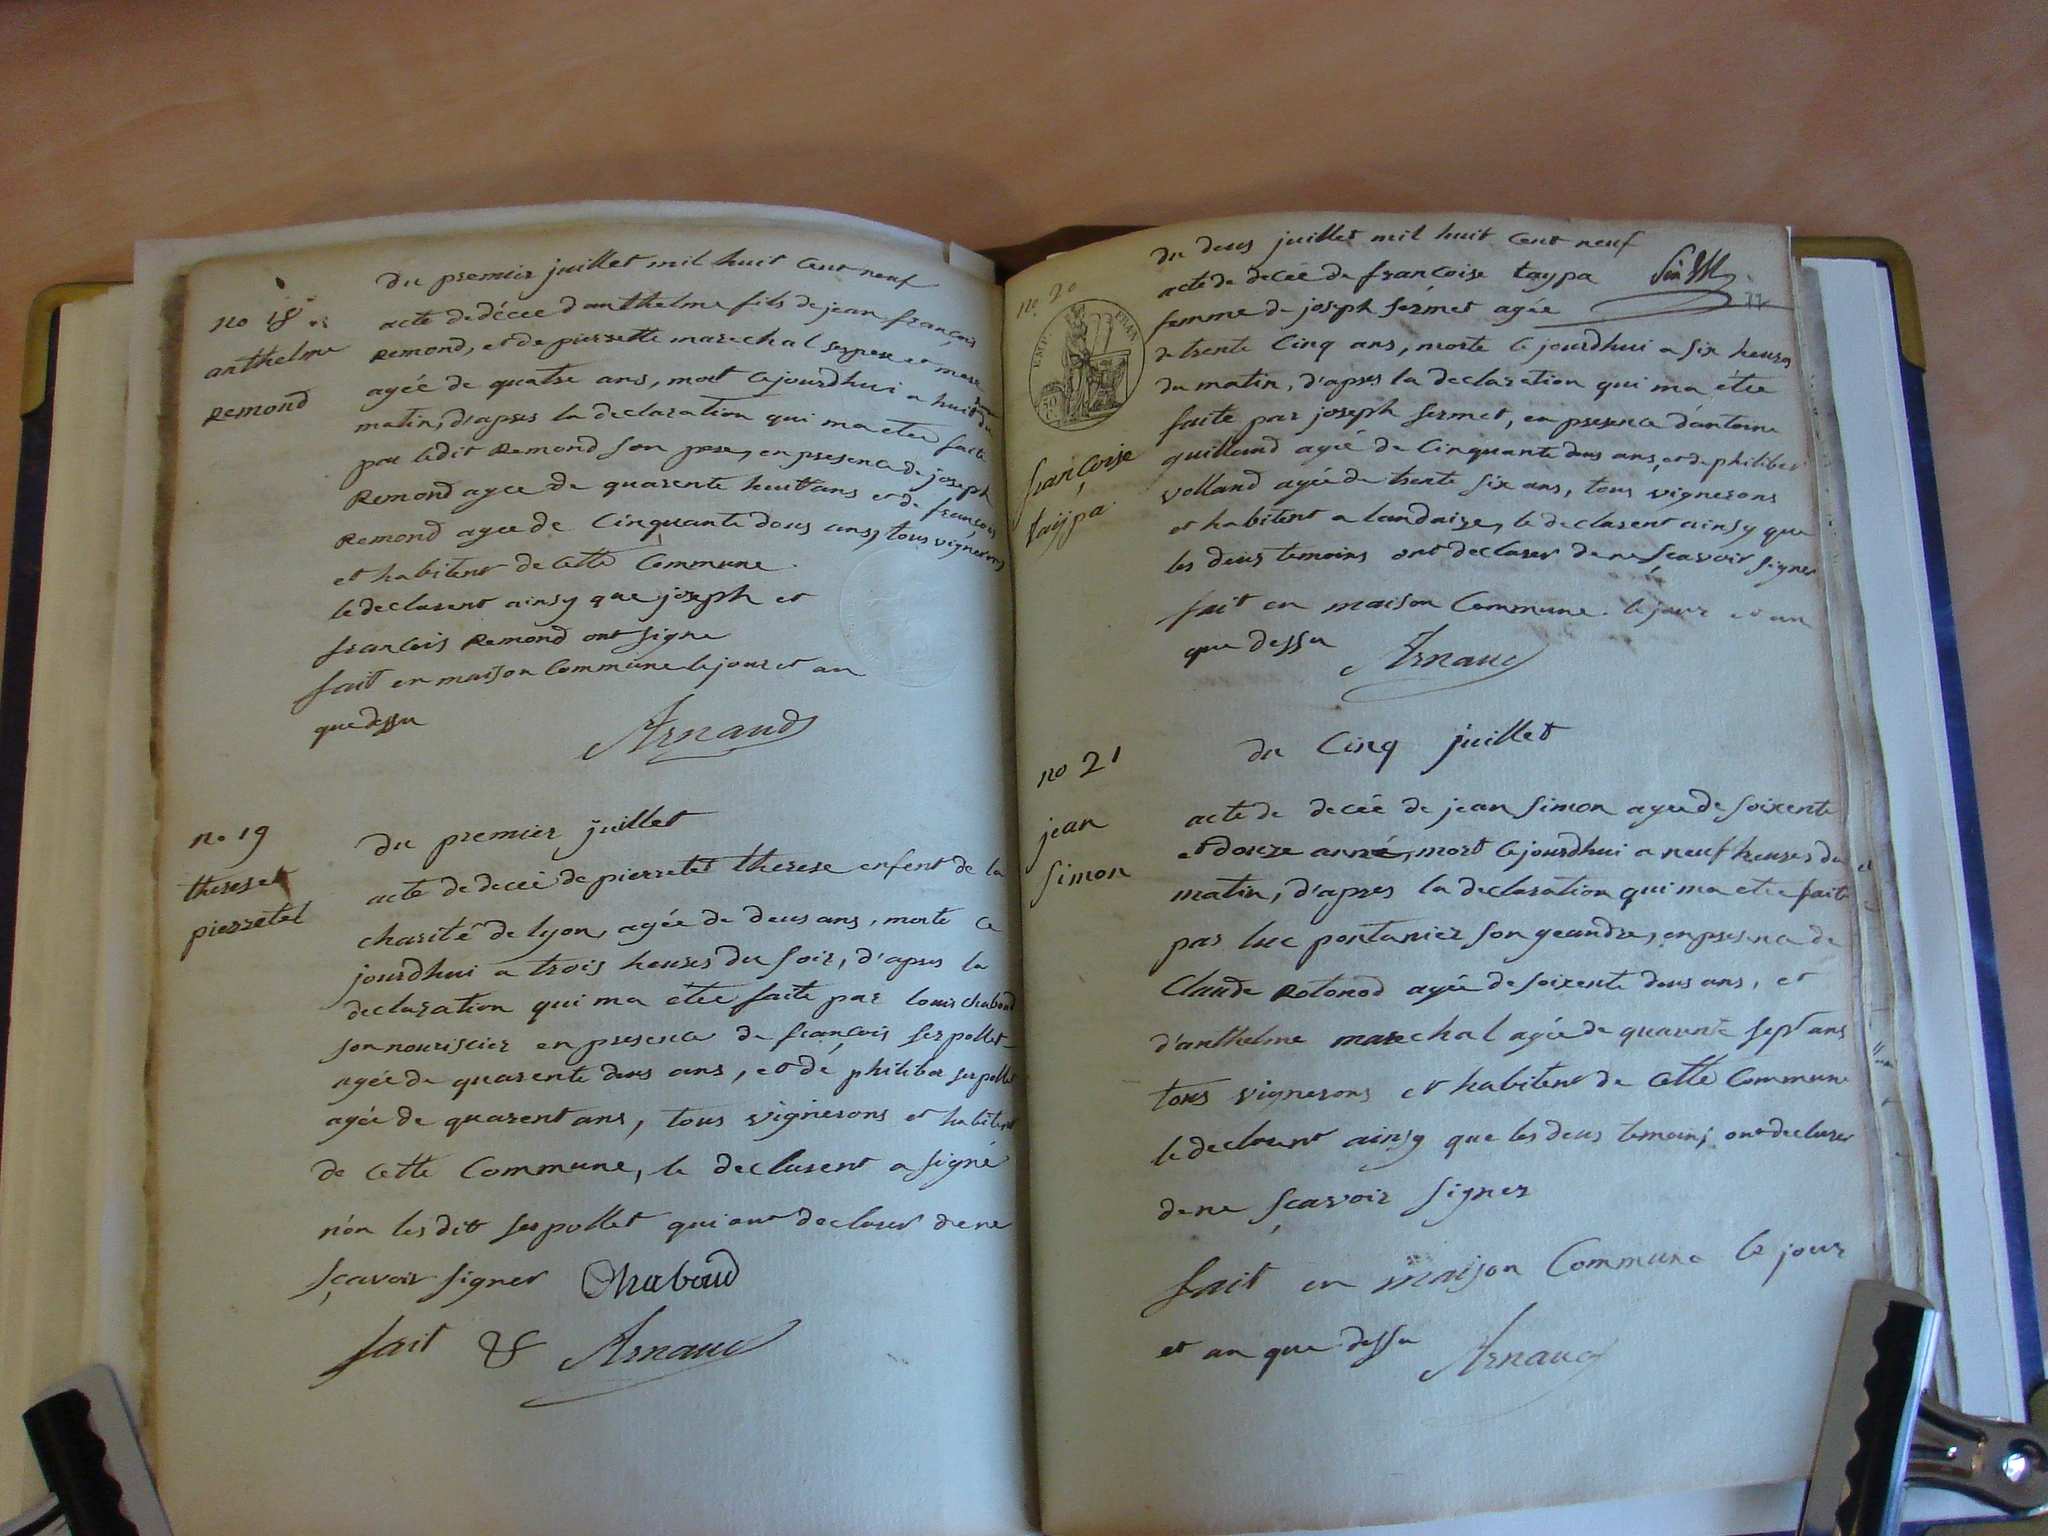 du premier juillet mil huit Cent neuf
no 18
anthelme
Remond
acte de décée d'anthelme fils de jean françois
Remond, et de pierrette marechal ses pere et mere
agée de quatre ans, mort cejourdhui a huit heures du
matin, d'apres la declaration qui ma etee faite
par ledit Remond son pere, en presence de joseph
Remond agee de quarente huit ans et de françois
Remond agee de Cinquante deus ans, tous vignerons
et habitent de Cette Commune
le declarent ainsy que joseph et
francois Remond ont signe
fait en maison Commune le jour et an
que dessu
Arnaud
no 19
therese et
pierretet
du premier juillet
acte de deceé de pierretet therese enfent de la
charité de lyon, agée de deus ans, morte Ce
jourdhui a trois heures du soir, d'apres la
declaration qui ma etee faite par louis chaboud
son nouriscier en presence de francois serpollet
agée de quarente deus ans, et dé philiber serpollet
agée de quarent ans, tous vignerons et habitent
de Cette Commune, le declarent a signé
n'on les dit serpollet qui ont declarer de ne
sçavoir signer Chaboud
fait & Arnaud
du deus juillet mil huit Cent neuf
no 20
EMP. FRAN.
50 C.
françoise
taÿpa
acte de deceé de francoise taypa
femme de joseph sermet agée
77
de trente Cinq ans, morte Cejourdhui a six heures
du matin, d'apres la declaration qui ma étee
faite par joseph sermet, en presence d'antoine
guilland ageé de Cinquante deus ans, et de philiber
volland agée de trente six ans, tous vignerons
et habitent a landaize, le declarent ainsy que
les deus temoins ont declarer de ne sçavoir signer
fait en maison Commune le jour et an
que dessu
Arnaud
no 21
jean
simon
du Cinq juillet
acte de deceé de jean simon agee de soixente
et douze anné, mort Cejourdhui a neuf heures du
matin, d'apres la declaration qui ma etee faite
par luc pontanier son geandre, en presence de
Claude Rotonod agée de soixente deus ans, et
d'anthelme marechal agée de quarente sept ans
tous vignerons et habitent de Cette Commune
le declarent ainsy que les deus temoins ont declarer
de ne sçavoir signer
fait en maison Commune le jour
et an que dessu
Arnaud